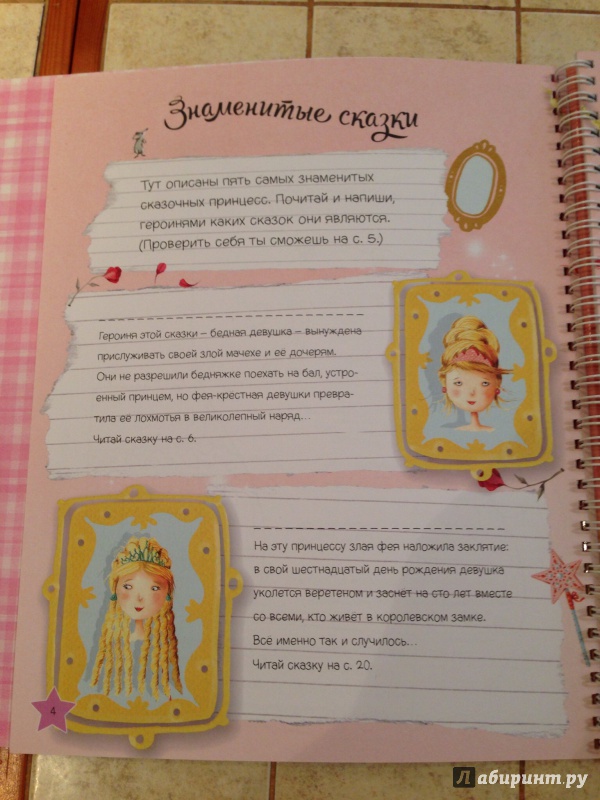 Знаменитые сказки
Тут описаны пять самых знаменитых
сказочных принцесс. Почитай и напиши,
героинями каких сказок они являются.
(Проверить себя ты сможешь на с. 5.)
Героиня этой сказки – бедная девушка – вынуждена
прислуживать своей злой мачехе и её дочерям.
Они не разрешили бедняжке поехать на бал, устро-
енный принцем, но фея-крестная девушки превра-
тила её лохмотья в великолепный наряд...
Читай сказку на с. 6.
На эту принцессу злая фея наложила заклятие:
в свой шестнадцатый день рождения девушка
уколется веретеном и заснёт на сто лет вместе
со всеми, кто живёт в королевском замке.
Все именно так и случилось...
Читай сказку на с. 20.
4
Лабиринт.ру